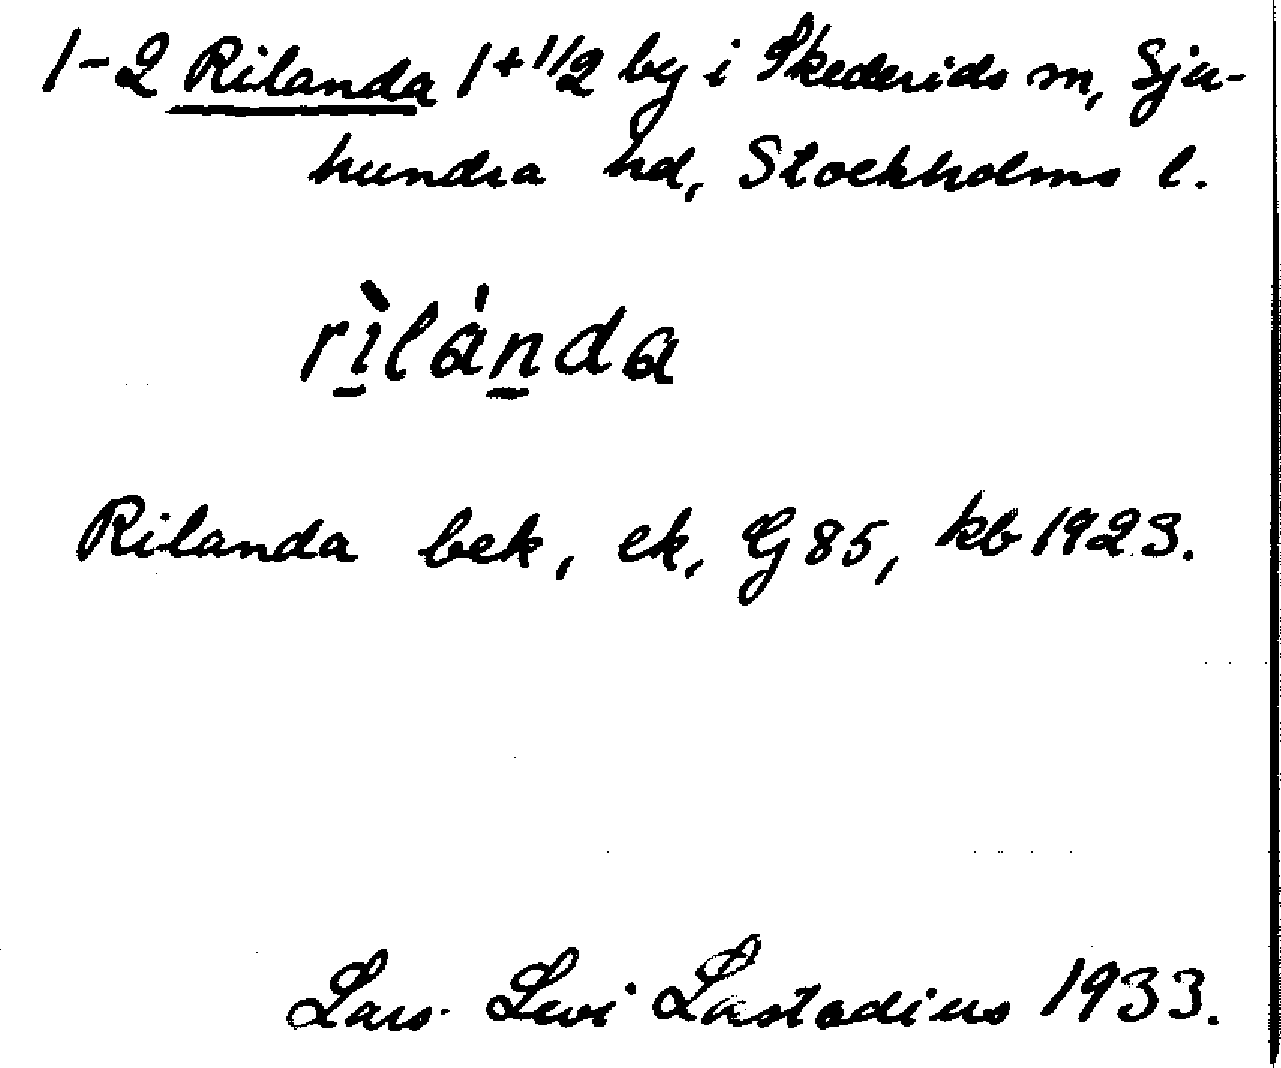 1-2 Rilanda 1+1/2 by i Skederids sn, Sju-
hundra hd, Stockholms l.
rìlánda
Rilanda bek, ek, G 85, kb 1923.
Lars Levi Læstadius 1933.